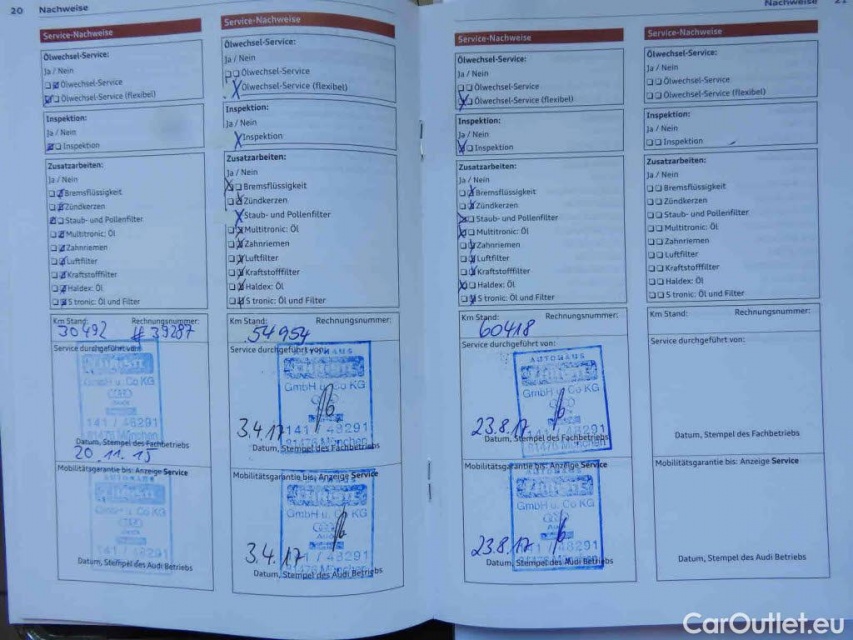 20 Nachweise
Service-Nachweise
Ölwechsel-Service:
Ja / Nein
Ölwechsel-Service
Ölwechsel-Service (flexibel)
Inspektion:
Ja / Nein
Inspektion
Zusatzarbeiten:
Ja / Nein
Bremsflüssigkeit
Zündkerzen
Staub- und Pollenfilter
Multitronic: Öl
Zahnriemen
Luftfilter
Kraftstofffilter
Haldex: Öl
S tronic: Öl und Filter
Km Stand: Rechnungsnummer:
30492 # 39287
Service durchgeführt von:
GmbH u. Co KG
141 / 48291
Datum, Stempel des Fachbetriebs
20.11.15
Mobilitätsgarantie bis: Anzeige Service
AUTOHAUS
GmbH u. Co KG
141 / 48291
Datum, Stempel des Audi Betriebs
Service-Nachweise
Ölwechsel-Service:
Ja / Nein
Ölwechsel-Service
Ölwechsel-Service (flexibel)
Inspektion:
Ja / Nein
Inspektion
Zusatzarbeiten:
Ja / Nein
Bremsflüssigkeit
Zündkerzen
Staub- und Pollenfilter
Multitronic: Öl
Zahnriemen
Luftfilter
Kraftstofffilter
Haldex: Öl
S tronic: Öl und Filter
Km Stand: Rechnungsnummer:
54954
Service durchgeführt von:
AUTOHAUS
GmbH u. Co KG
3.4.17 141 / 48291
81476 München
Datum, Stempel des Fachbetriebs
Mobilitätsgarantie bis: Anzeige Service
GmbH u. Co KG
Audi
3.4.17 141 / 48291
81476 München
Datum, Stempel des Audi Betriebs
Nachweise 21
Service-Nachweise
Ölwechsel-Service:
Ja / Nein
Ölwechsel-Service
Ölwechsel-Service (flexibel)
Inspektion:
Ja / Nein
Inspektion
Zusatzarbeiten:
Ja / Nein
Bremsflüssigkeit
Zündkerzen
Staub- und Pollenfilter
Multitronic: Öl
Zahnriemen
Luftfilter
Kraftstofffilter
Haldex: Öl
S tronic: Öl und Filter
Km Stand: Rechnungsnummer:
60418
Service durchgeführt von:
AUTOHAUS
GmbH u. Co KG
23.8.17 141 / 48291
81476 München
Datum, Stempel des Fachbetriebs
Mobilitätsgarantie bis: Anzeige Service
GmbH u. Co KG
Audi
23.8.17 141 / 48291
81476 München
Datum, Stempel des Audi Betriebs
Service-Nachweise
Ölwechsel-Service:
Ja / Nein
Ölwechsel-Service
Ölwechsel-Service (flexibel)
Inspektion:
Ja / Nein
Inspektion
Zusatzarbeiten:
Ja / Nein
Bremsflüssigkeit
Zündkerzen
Staub- und Pollenfilter
Multitronic: Öl
Zahnriemen
Luftfilter
Kraftstofffilter
Haldex: Öl
S tronic: Öl und Filter
Km Stand: Rechnungsnummer:
Service durchgeführt von:
Datum, Stempel des Fachbetriebs
Mobilitätsgarantie bis: Anzeige Service
Datum, Stempel des Audi Betriebs
CarOutlet.eu